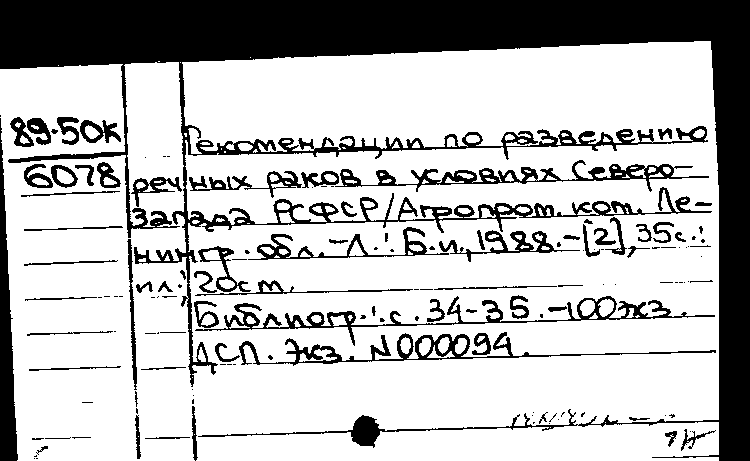 89-50К
6078
Рекомендации по разведению
речных раков в условиях Северо-
Запада РСФСР/Агропром. ком. Ле-
нингр. обл. -Л.: Б.и., 1988. -[2], 35с.:
ил.; 20см.
Библиогр.: с. 34-35. -100экз.
ДСП. Экз. N000094.